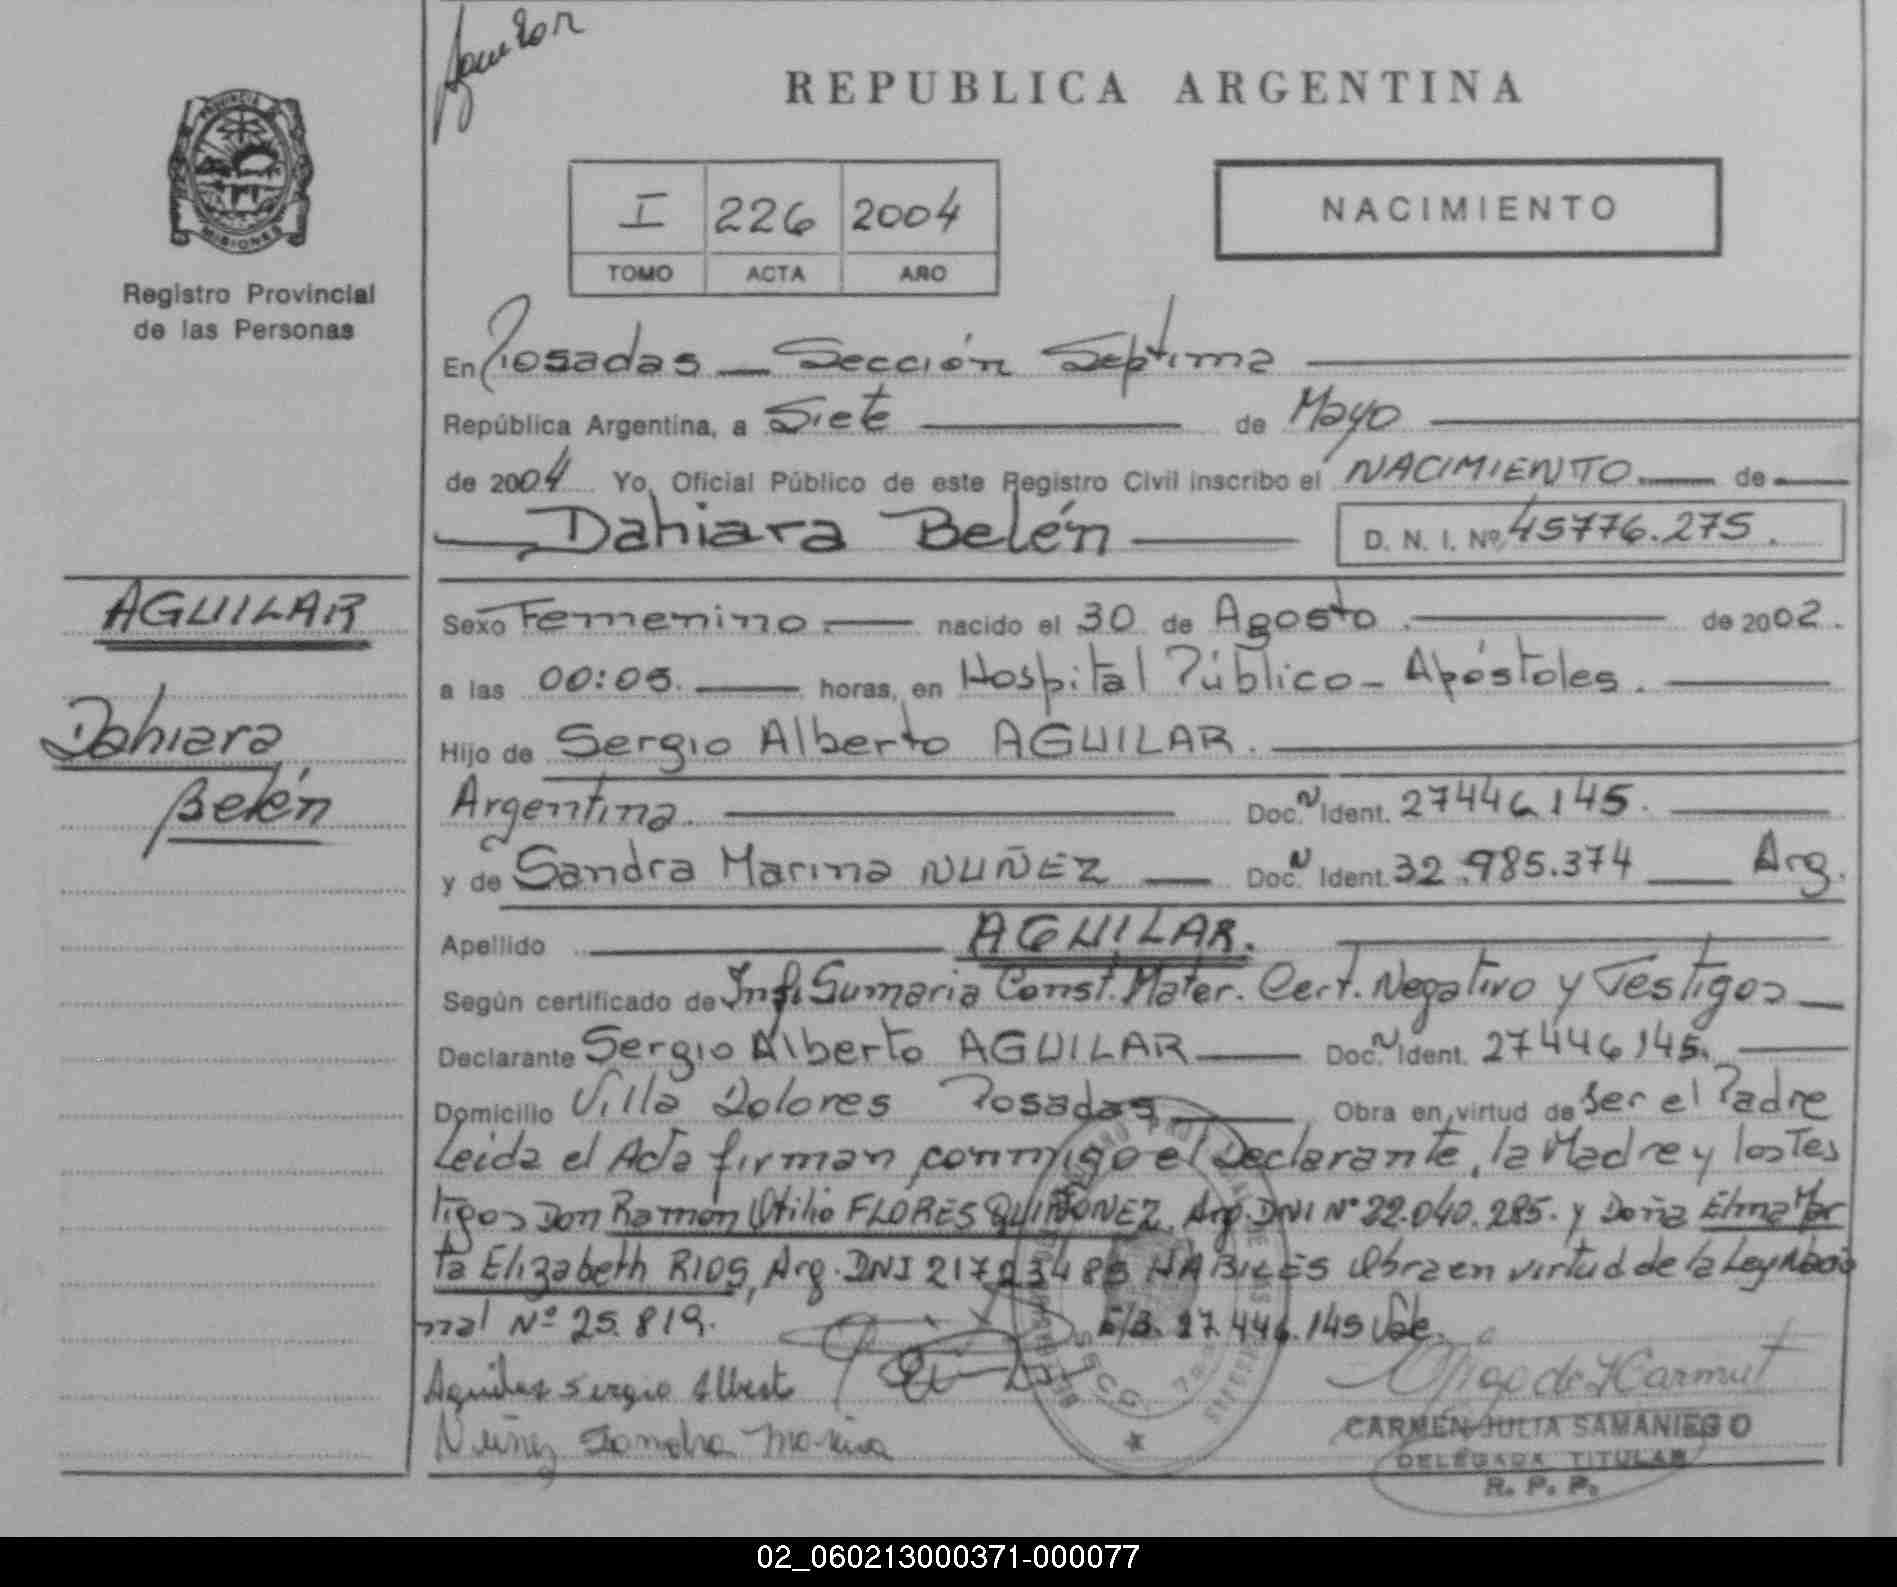 Aguilar
REPUBLICA ARGENTINA
PROVINCIA
MISIONES
Registro Provincial
de las Personas
I 226 2004
TOMO ACTA AÑO
NACIMIENTO
En Posadas - Sección Septima
República Argentina, a Siete de Mayo
de 2004 Yo, Oficial Público de este Registro Civil inscribo el NACIMIENTO de
Dahiara Belén D. N. I. Nº 45776.275.
AGUILAR
Dahiara
Belén
Sexo Femenino. nacido el 30 de Agosto. de 2002.
a las 00:05. horas, en Hospital Público - Apóstoles.
Hijo de Sergio Alberto AGUILAR.
Argentina. Doc. N Ident. 27446145.
y de Sandra Marina NUÑEZ Doc. N Ident. 32.985.374 Arg.
Apellido AGUILAR.
Según certificado de Inf. Sumaria Const. Mater. Cert. Negativo y Testigos
Declarante Sergio Alberto AGUILAR Doc. N Ident. 27446145.
Domicilio Villa Dolores Posadas Obra en virtud de ser el Padre
Leida el Acta firman conmigo el Declarante, la Madre y los Tes
tigos Don Ramón Otilio FLORES QUIÑONEZ, Arg. DNI Nº 22.040.285. y Doña Elma Mar
ta Elizabeth RIOS, Arg. DNI HABILES Obra en virtud de la Ley Nacio
nal Nº 25.819. E/B. 27.446.145 Vale.
Aguilar Sergio Alberto
Nuñez Sandra Marina
CARMEN JULIA SAMANIEGO
DELEGADA TITULAR
R. P. P.
02_060213000371-000077